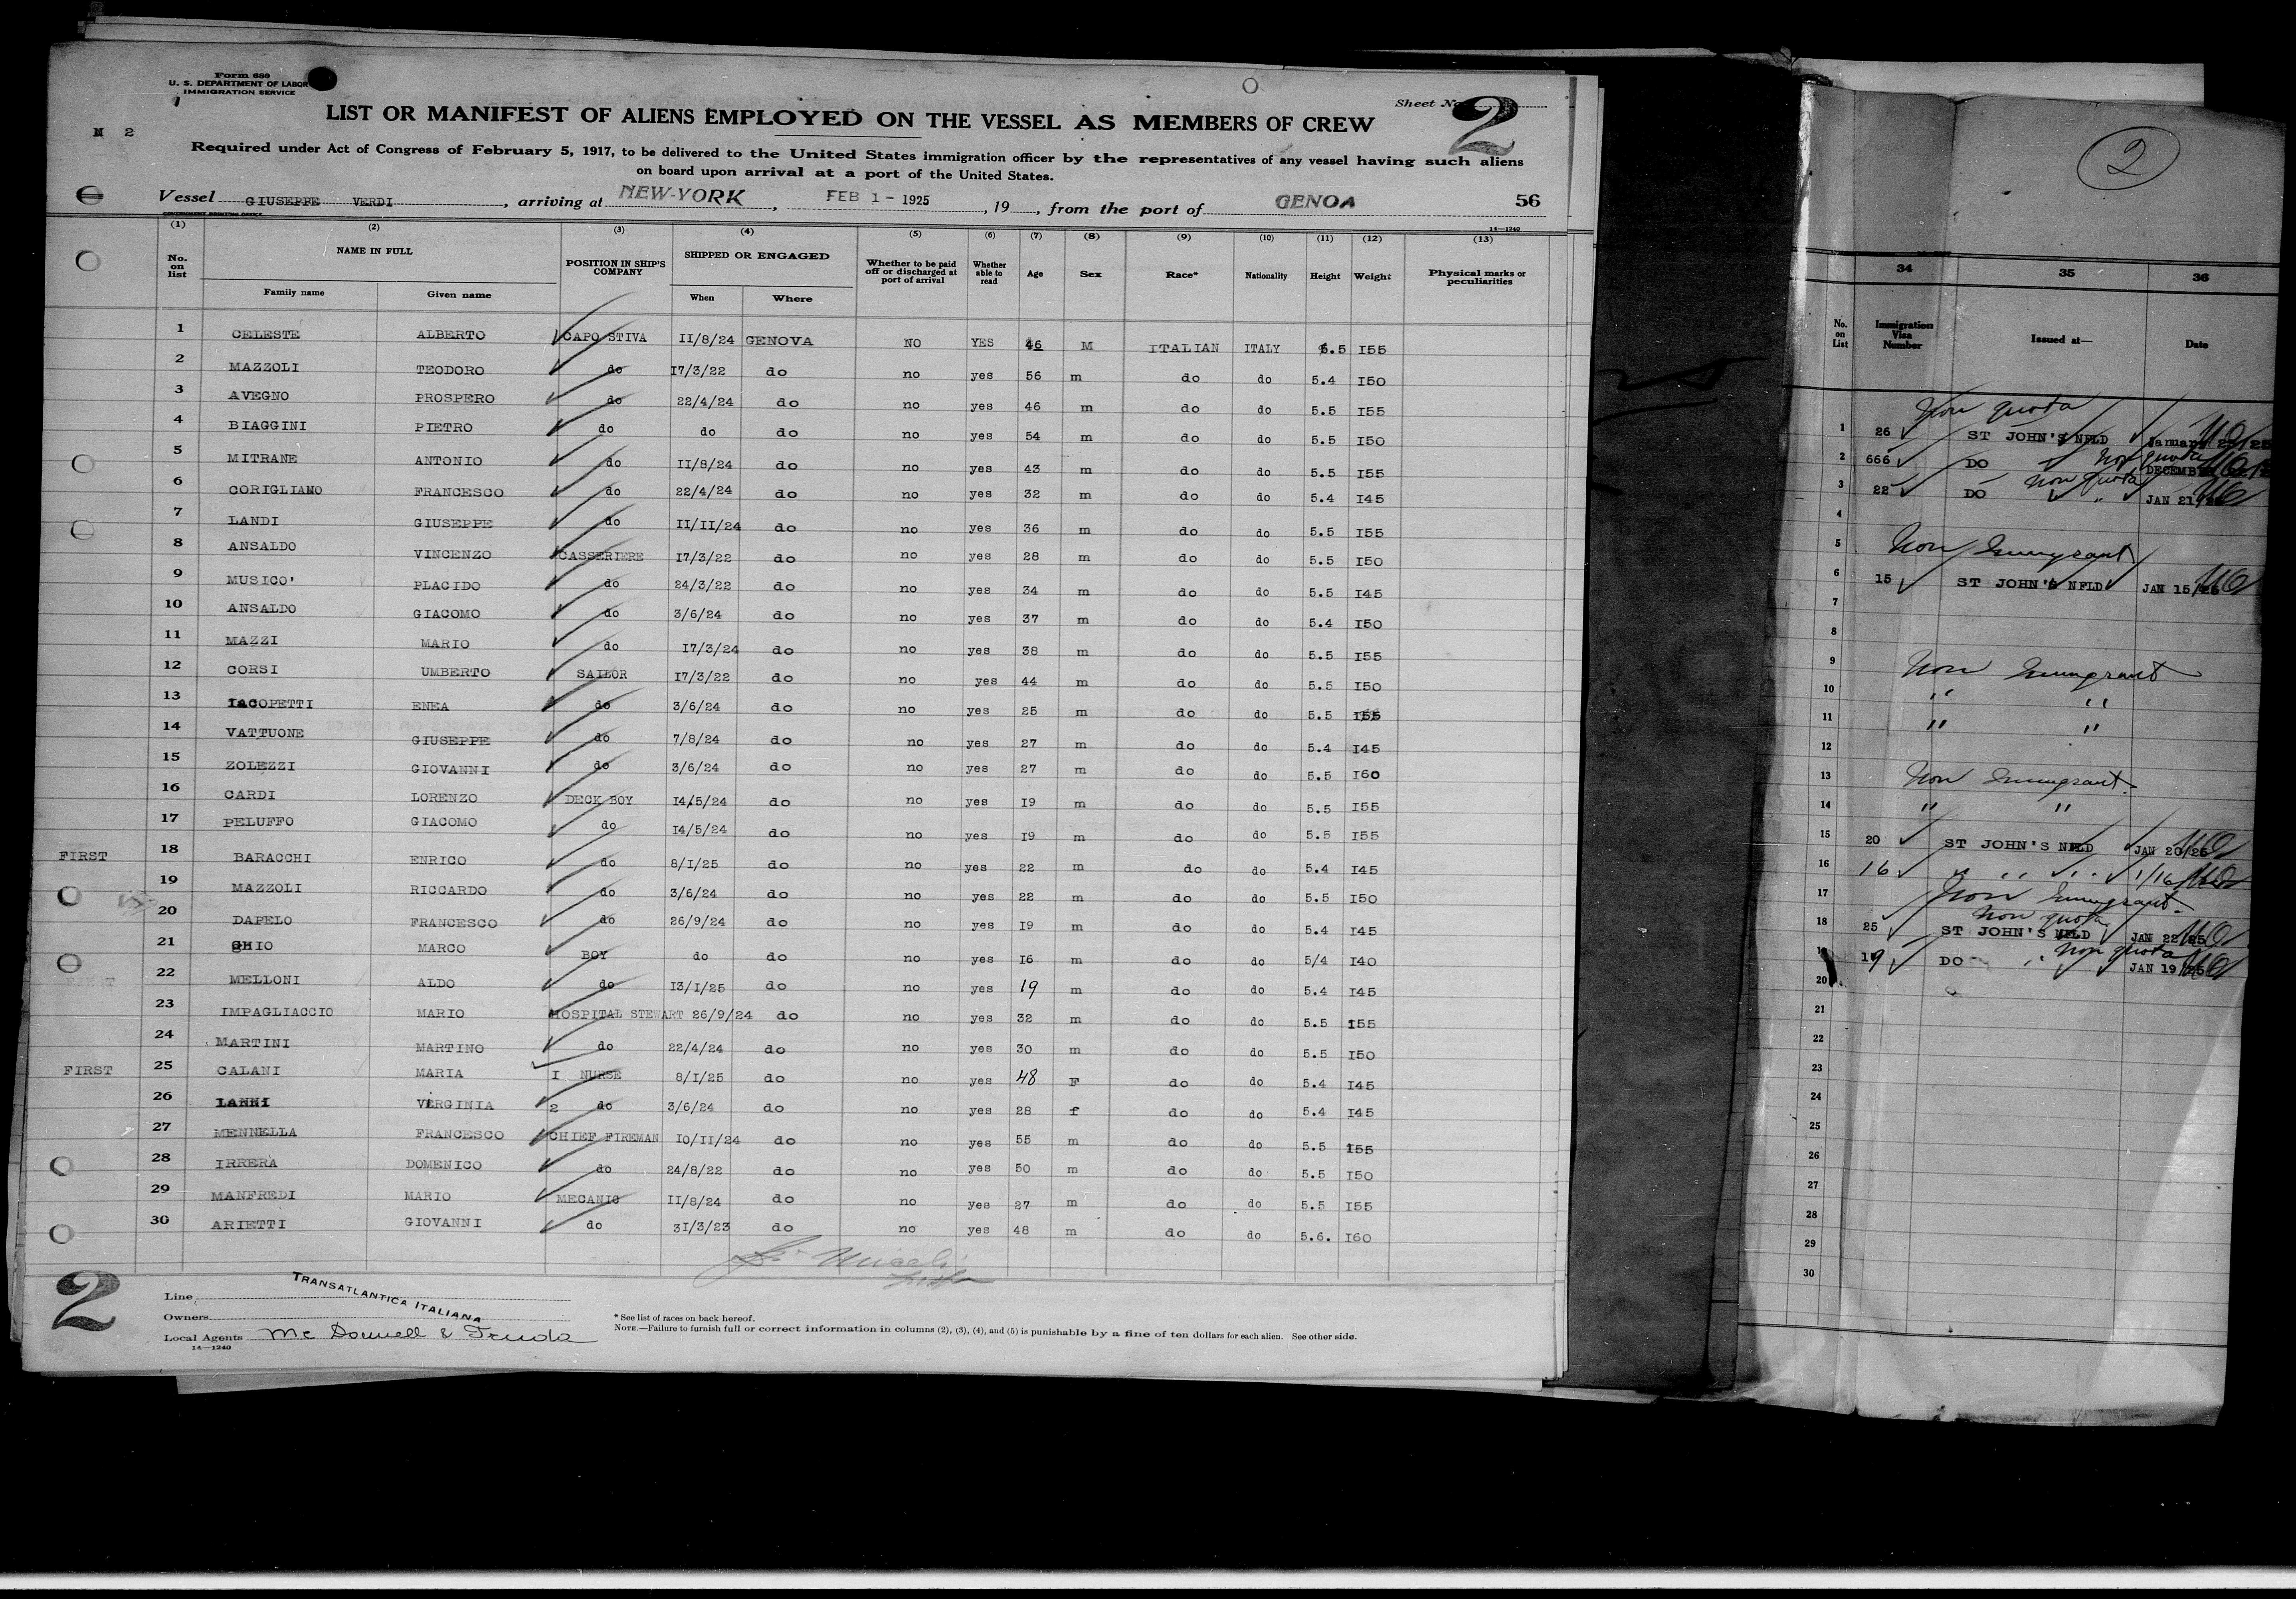 Form 680
U. S. DEPARTMENT OF LABOR
IMMIGRATION SERVICE
Sheet No. 2
N 2
LIST OR MANIFEST OF ALIENS EMPLOYED ON THE VESSEL AS MEMBERS OF CREW
Required under Act of Congress of February 5, 1917, to be delivered to the United States immigration officer by the representatives of any vessel having such aliens
on board upon arrival at a port of the United States.
Vessel GIUSEPPE VERDI, arriving at NEW-YORK, FEB 1 - 1925, 19, from the port of GENOA 56
GOVERNMENT PRINTING OFFICE 14—1240
(1) (2) (3) (4) (5) (6) (7) (8) (9) (10) (11) (12) (13)
No. on list NAME IN FULL Family name Given name POSITION IN SHIP'S COMPANY SHIPPED OR ENGAGED When Where Whether to be paid off or discharged at port of arrival Whether able to read Age Sex Race* Nationality Height Weight Physical marks or peculiarities
1 CELESTE ALBERTO CAPO STIVA II/8/24 GENOVA NO YES 46 M ITALIAN ITALY 5.5 I55
2 MAZZOLI TEODORO do I7/3/22 do no yes 56 m do do 5.4 I50
3 AVEGNO PROSPERO do 22/4/24 do no yes 46 m do do 5.5 I55
4 BIAGGINI PIETRO do do do no yes 54 m do do 5.5 I50
5 MITRANE ANTONIO do II/8/24 do no yes 43 m do do 5.5 I55
6 CORIGLIANO FRANCESCO do 22/4/24 do no yes 32 m do do 5.4 I45
7 LANDI GIUSEPPE do II/II/24 do no yes 36 m do do 5.5 I55
8 ANSALDO VINCENZO CASSERIERE I7/3/22 do no yes 28 m do do 5.5 I50
9 MUSICO' PLACIDO do 24/3/22 do no yes 34 m do do 5.5 I45
10 ANSALDO GIACOMO do 3/6/24 do no yes 37 m do do 5.4 I50
11 MAZZI MARIO do I7/3/24 do no yes 38 m do do 5.5 I55
12 CORSI UMBERTO SAILOR I7/3/22 do no yes 44 m do do 5.5 I50
13 IACOPETTI ENEA do 3/6/24 do no yes 25 m do do 5.5 I55
14 VATTUONE GIUSEPPE do 7/8/24 do no yes 27 m do do 5.4 I45
15 ZOLEZZI GIOVANNI do 3/6/24 do no yes 27 m do do 5.5 I60
16 CARDI LORENZO DECK BOY I4/5/24 do no yes I9 m do do 5.5 I55
17 PELUFFO GIACOMO do I4/5/24 do no yes I9 m do do 5.5 I55
FIRST 18 BARACCHI ENRICO do 8/I/25 do no yes 22 m do do 5.4 I45
19 MAZZOLI RICCARDO do 3/6/24 do no yes 22 m do do 5.5 I50
20 DAPELO FRANCESCO do 26/9/24 do no yes I9 m do do 5.4 I45
21 GHIO MARCO BOY do do no yes I6 m do do 5/4 I40
22 MELLONI ALDO do I3/I/25 do no yes 19 m do do 5.4 I45
23 IMPAGLIACCIO MARIO HOSPITAL STEWART 26/9/24 do no yes 32 m do do 5.5 I55
24 MARTINI MARTINO do 22/4/24 do no yes 30 m do do 5.5 I50
FIRST 25 CALANI MARIA I NURSE 8/I/25 do no yes 48 F do do 5.4 I45
26 IANNI VIRGINIA 2 do 3/6/24 do no yes 28 f do do 5.4 I45
27 MENNELLA FRANCESCO CHIEF FIREMAN I0/II/24 do no yes 55 m do do 5.5 I55
28 IRRERA DOMENICO do 24/8/22 do no yes 50 m do do 5.5 I50
29 MANFREDI MARIO MECANIC II/8/24 do no yes 27 m do do 5.5 I55
30 ARIETTI GIOVANNI do 3I/3/23 do no yes 48 m do do 5.6. I60
2
Line TRANSATLANTICA ITALIANA
Owners
Local Agents Mc Donnell & Truda
14—1240
* See list of races on back hereof.
NOTE.—Failure to furnish full or correct information in columns (2), (3), (4), and (5) is punishable by a fine of ten dollars for each alien. See other side.
2
34 35 36
No. on List Immigration Visa Number Issued at— Date
Non quota
1 26 ST JOHN'S NFLD January
Non quota
2 666 DO
Non quota
3 22 DO " JAN 21
4
5 Non Immigrant
6 15 ST JOHN'S NFLD JAN 15/25
7
8
9 Non Immigrant
10 " "
11 " "
12
13 Non Immigrant
14 " "
15 20 ST JOHN'S NFLD JAN 20/25
16 16 " " " 1/16
17 Non Immigrant
Non quota
18 25 ST JOHN'S NFLD JAN 22 25
Non quota
19 19 DO JAN 19 25
20
21
22
23
24
25
26
27
28
29
30